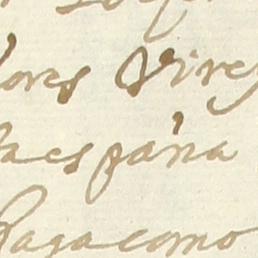 ores Virey
aespaña
Pagacomo